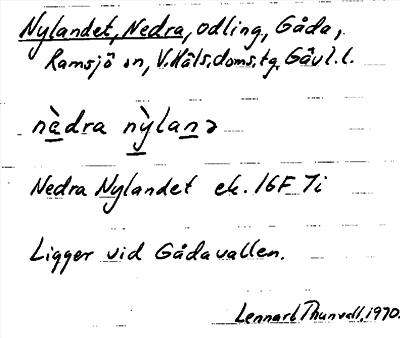 Nylandet, Nedra, odling, Gåda,
Ramsjö sn, V.Häls.doms.tg. Gävl.l.
nèdra nỳlanə
Nedra Nylandet ek. 16F 7i
Ligger vid Gådavallen.
Lennart Thunvall, 1970.